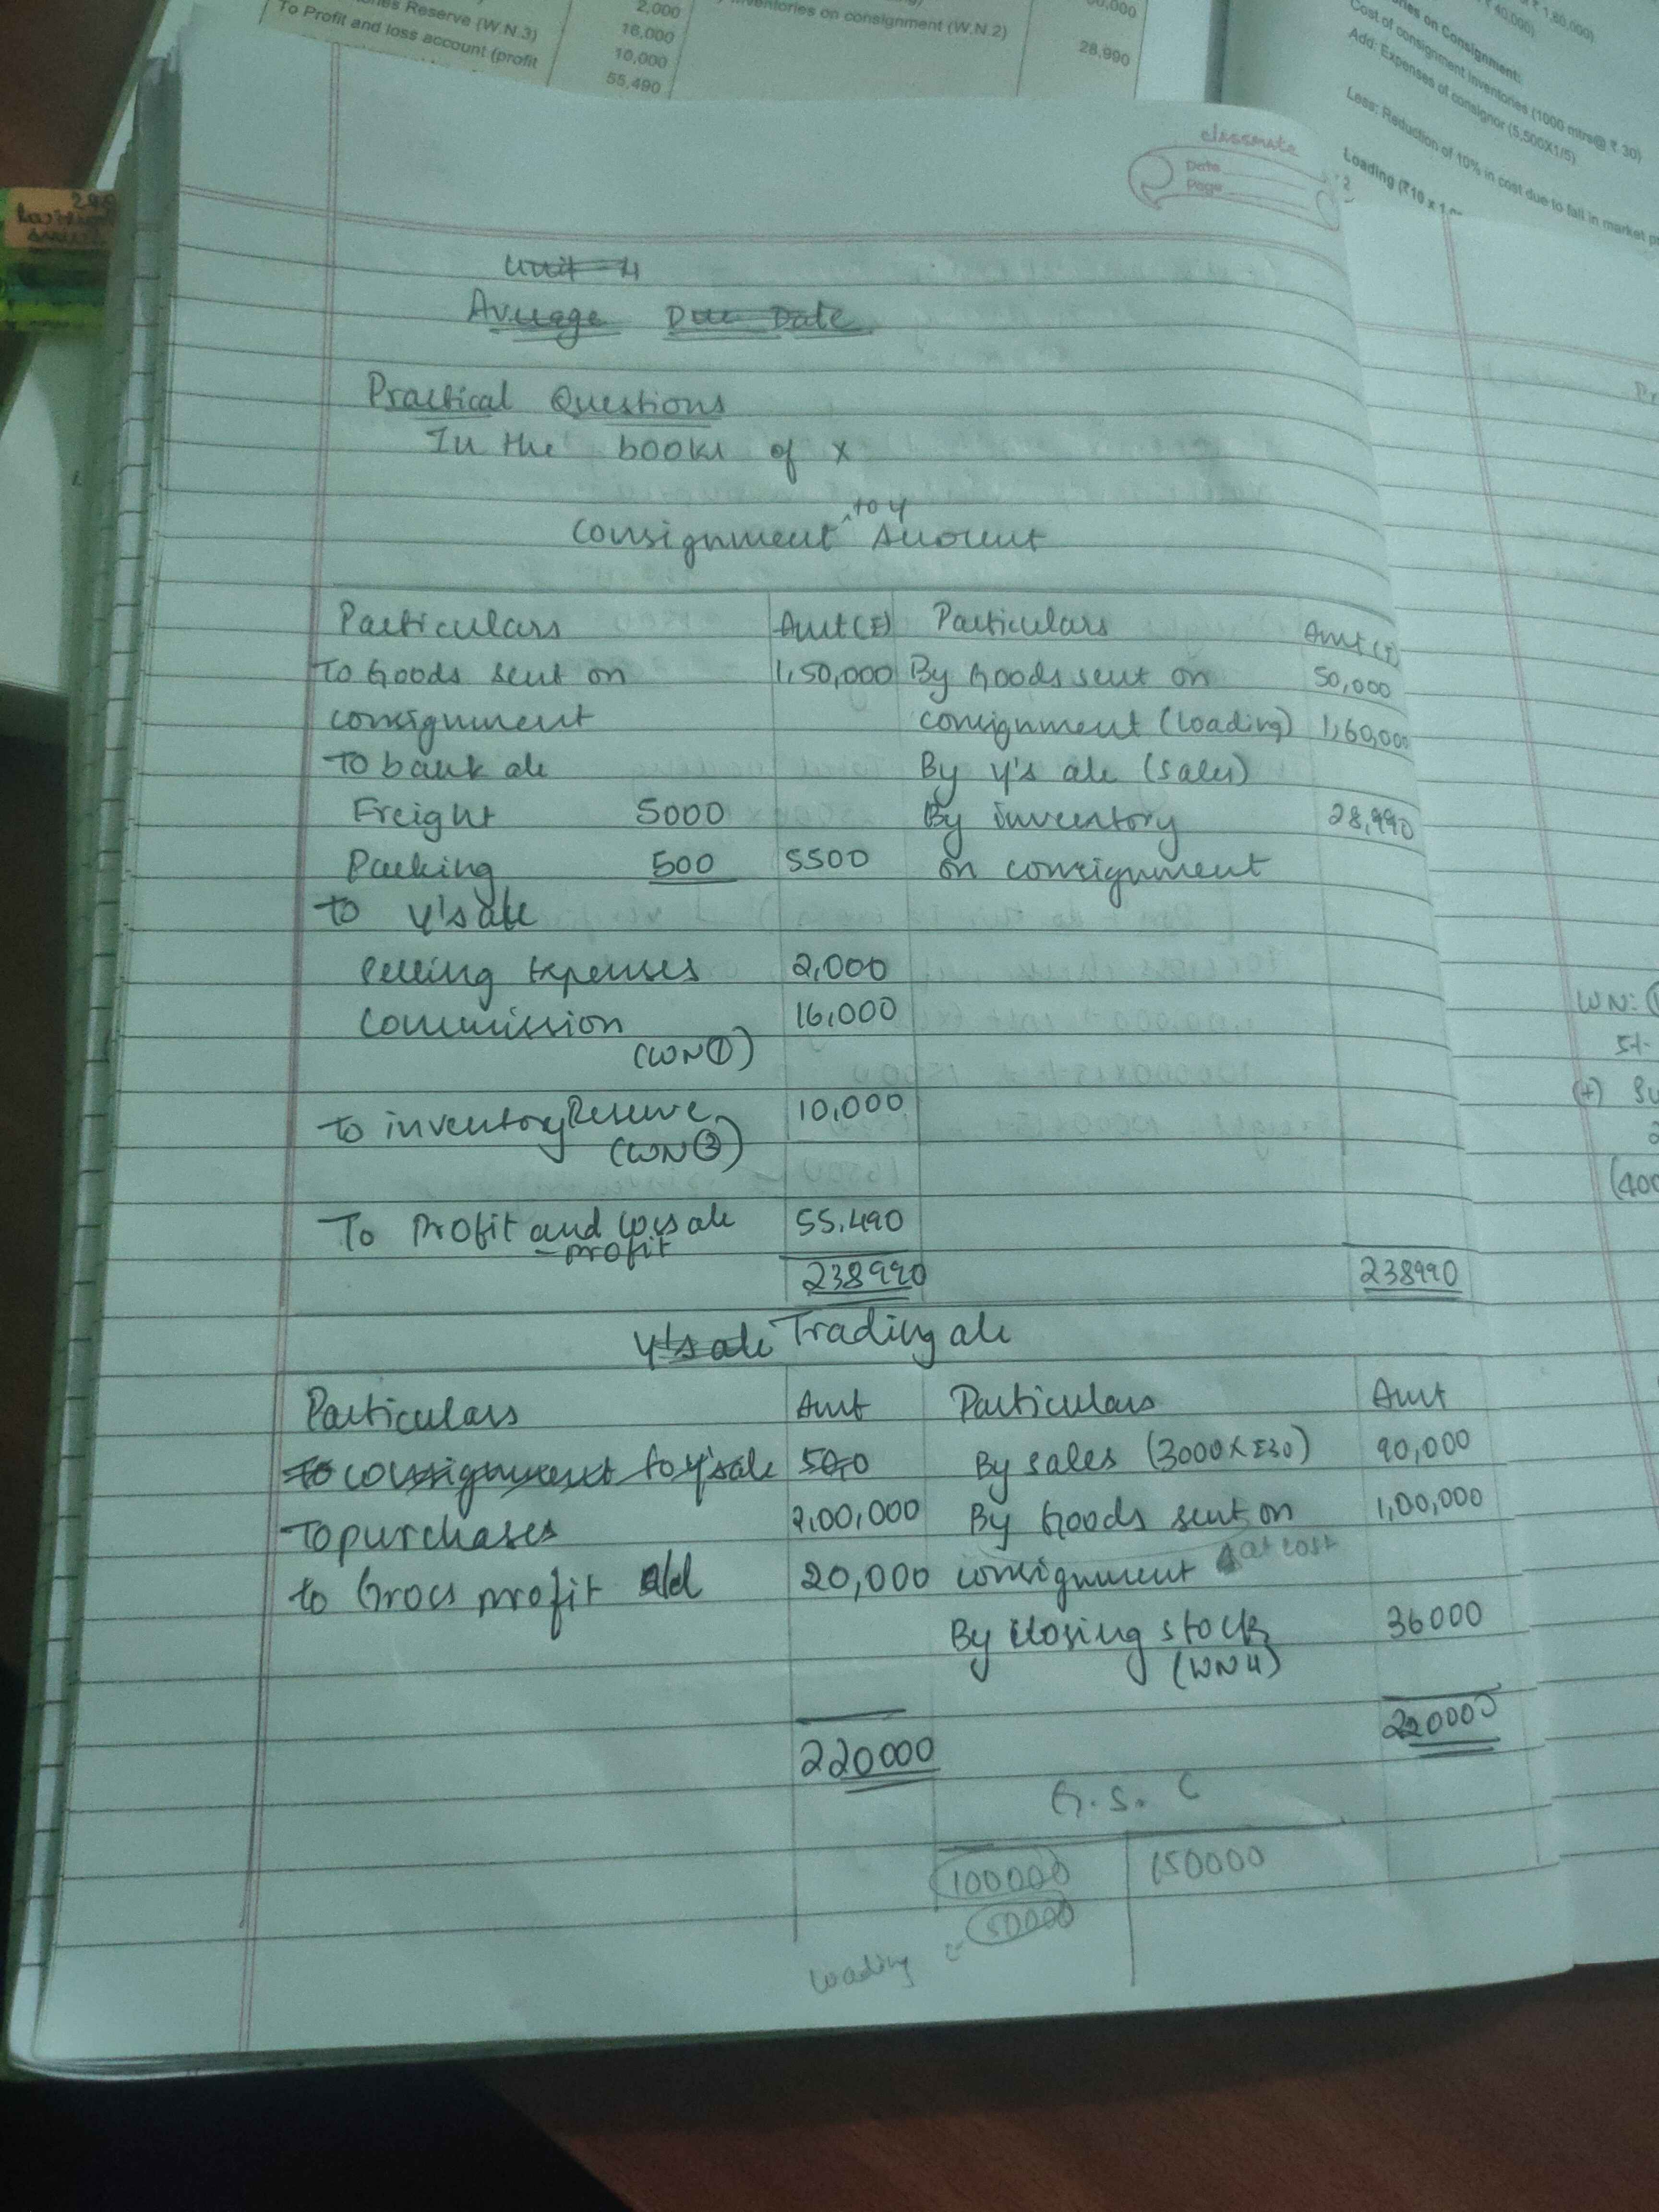 ies Reserve (W.N.3)
To Profit and loss account (profit
2,000
16,000
10,000
55,490
ventories on consignment (W.N.2)
28,990
₹ 40,000)
₹ 1,60,000)
ries on Consignment:
Cost of consignment inventories (1000 mtrs@ ₹ 30)
Add: Expenses of consignor (5,500X1/5)
Less: Reduction of 10% in cost due to fall in market p
Loading (₹10 x 1
classmate
Date
Page
Unit-4
Average Due Date
Practical Questions
In the books of X
Consignment ^to Y Account
Particulars Amt(₹) Particulars Amt(₹)
To Goods sent on 1,50,000 By Goods sent on 50,000
consignment consignment (loading) 1,60,000
To bank a/c By Y's a/c (sales)
Freight 5000 By inventory 28,990
Packing 500 5500 on consignment
to Y's a/c
selling expenses 2,000
Commission 16,000
(WN①)
To inventory Reserve 10,000
(WN③)
To Profit and loss a/c 55,490
- profit
238990 238990
Y's a/c Trading a/c
Particulars Amt Particulars Amt
To consignment to Y's a/c 5000 By sales (3000X₹30) 90,000
To purchases 2,00,000 By Goods sent on 1,00,000
to Gross profit 20,000 consignment at cost
By closing stock 36000
(WN4)
220000 220000
G.S.C
100000 150000
50000
loading =
WN:
(+)
(400